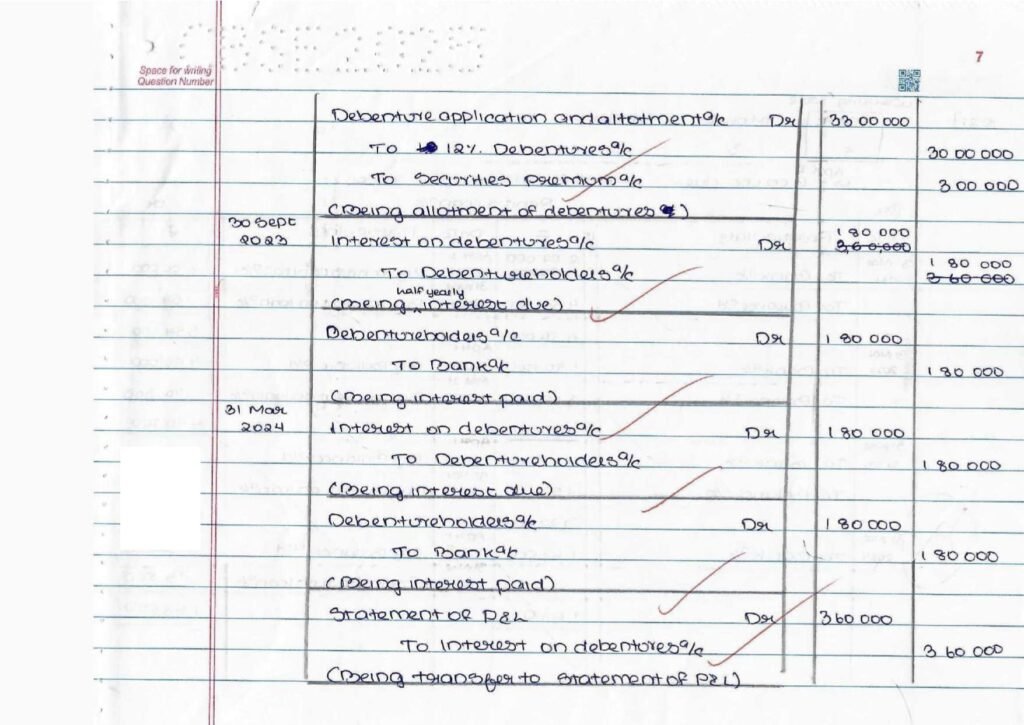 CBSE 2025
7
Space for writing
Question Number
Debenture application and allotment a/c Dr 33 00 000
To 12% Debentures a/c 30 00 000
To Securities premium a/c 3 00 000
(Being allotment of debentures)
30 Sept
2023
Interest on debentures a/c Dr 1 80 000
3,60,000
To Debentureholders a/c 1 80 000
3 60 000
(Being half yearly interest due)
Debentureholders a/c Dr 1 80 000
To Bank a/c 1 80 000
(Being interest paid)
31 Mar
2024
Interest on debentures a/c Dr 1 80 000
To Debentureholders a/c 1 80 000
(Being interest due)
Debentureholders a/c Dr 1 80 000
To Bank a/c 1 80 000
(Being interest paid)
Statement of P&L Dr 3 60 000
To Interest on debentures a/c 3 60 000
(Being transfer to Statement of P&L)